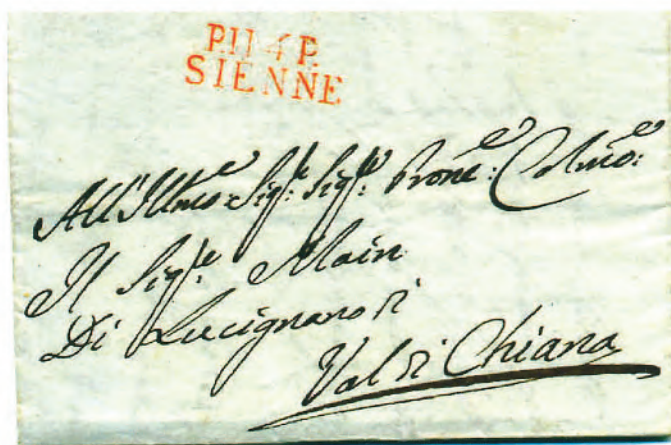 P.114.P.
SIENNE
All'Illmo:e Sig:re Sig:re Prone:e Colmo:e
Il Sig:re Main
Di Lucignano di
Val di Chiana